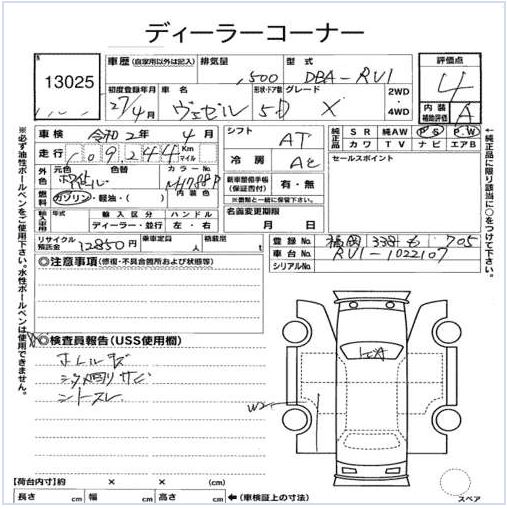 ディーラーコーナー
13025
車歴 (自家用以外は記入) 排気量 型式
1,500 DBA-RU1
初度登録年月 車名 形状・ドア数 グレード 2WD
27/4月 ヴェゼル 5D X ・4WD
評価点
4
内装補助評価 A
車検 令和2年 4月
走行 109244 Km マイル
外色 元色 色替 カラーNo.
ホワイトパール NH788P
燃料 ガソリン・軽油・( ) 内装色
輸入車用 年式 輸入区分 ハンドル
ディーラー・並行 左・右
リサイクル預託金 12850円 乗車定員 人 積載量 t
シフト AT
冷房 AC
新車整備手帳(保証書付) 有・無
※書類と一緒に保管して下さい。
名義変更期限
月 日
純正品 SR 純AW PS P.W
カワ TV ナビ エアB
セールスポイント
登録No. 福岡 338 も 705
車台No. RU1-1022107
シリアルNo.
※必ず油性ボールペンをご使用下さい。水性ボールペンは使用できません。
←純正品に限り該当に○をつけて下さい。
◎注意事項(修復・不具合箇所および状態等)
◎検査員報告(USS使用欄)
シタ廻りサビ
シートスレ
W2
【荷台内寸】約 × × (cm)
長さ cm 幅 cm 高さ cm ←(車検証上の寸法)
スペア